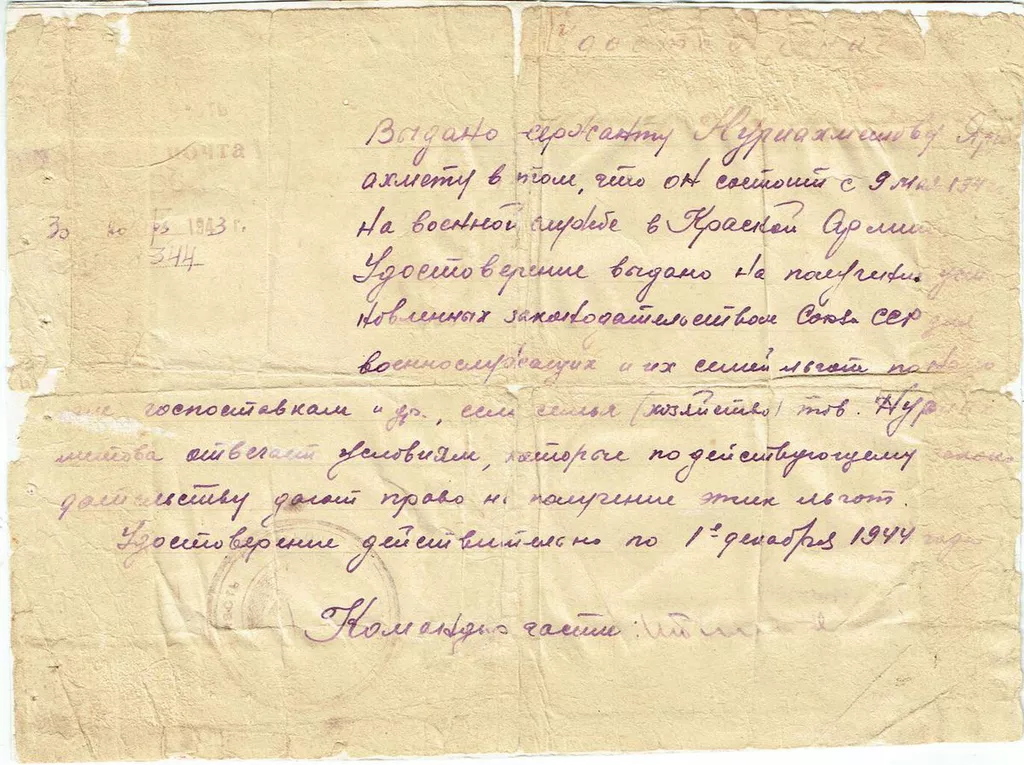 Удостоверение
часть
почта
Выдано сержанту Нуриахметову Яри
ахмету в том, что он состоит с 9 мая 194
30 но 1943 г.
на военной службе в Красной Армии
344
Удостоверение выдано на получение уста
новленных законодательством Союза ССР для
военнослужащих и их семей льгот по нало
гам, госпоставкам и др., если семья (хозяйство) тов. Нуриах
метова отвечает условиям, которые по действующему законо
дательству дают право на получение этих льгот.
Удостоверение действительно по 1е декабря 1944 года
часть
Командир части: